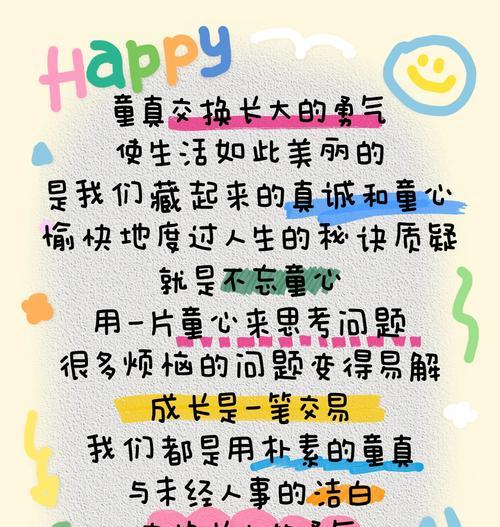 Happy
童真交换长大的勇气
使生活如此美丽的
是我们藏起来的真诚和童心
愉快地度过人生的秘诀质疑
就是不忘童心
用一片童心来思考问题
很多烦恼的问题变得易解
成长是一笔交易
我们都是用朴素的童真
与未经人事的洁白